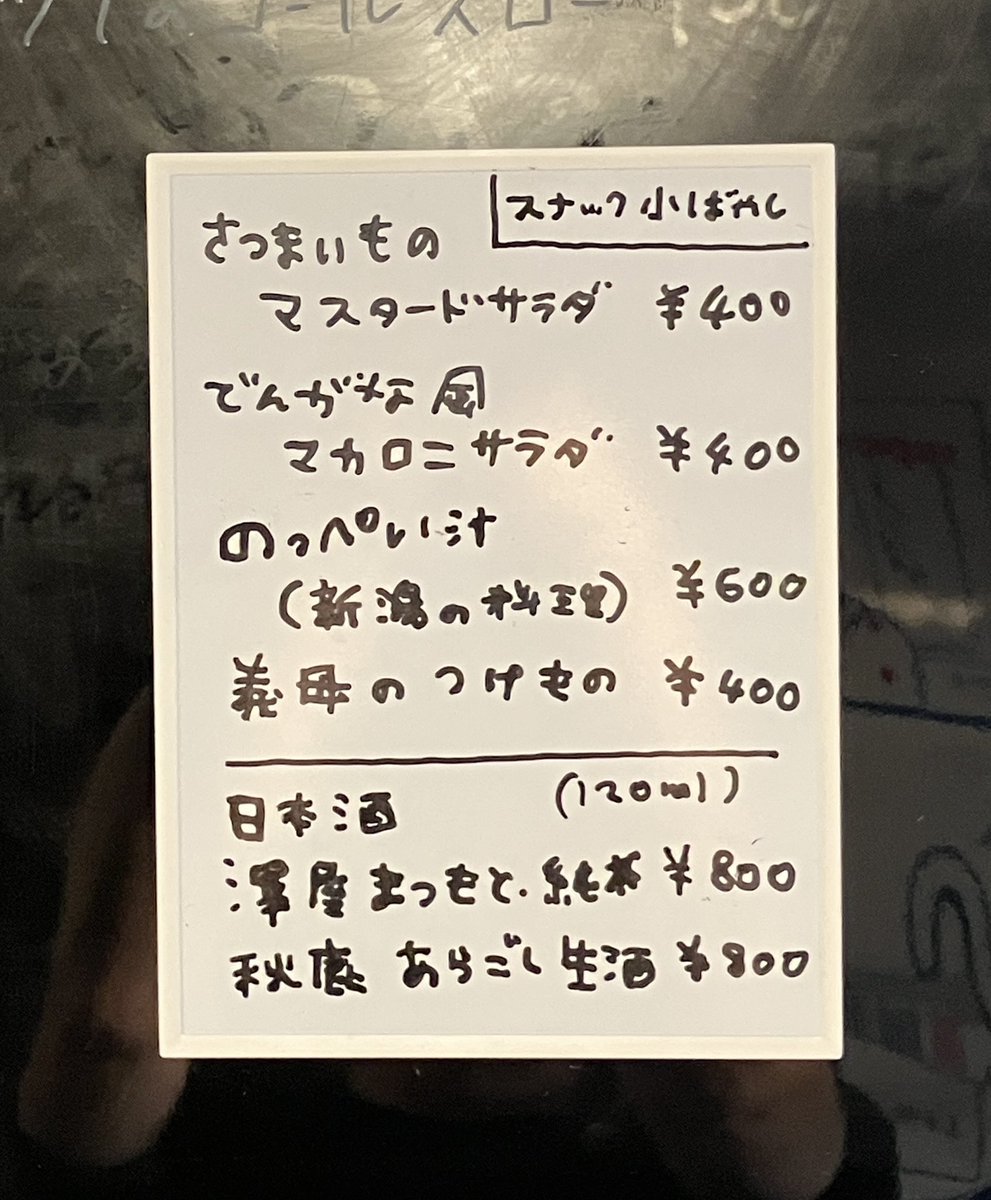 コールスロー
スナック 小ばやし
さつまいもの
マスタードサラダ ¥400
でんがな風
マカロニサラダ ¥400
のっぺい汁
(新潟の料理) ¥600
義母のつけもの ¥400
日本酒 (120ml)
澤屋まつもと.純米 ¥800
秋鹿 あらごし生酒 ¥800